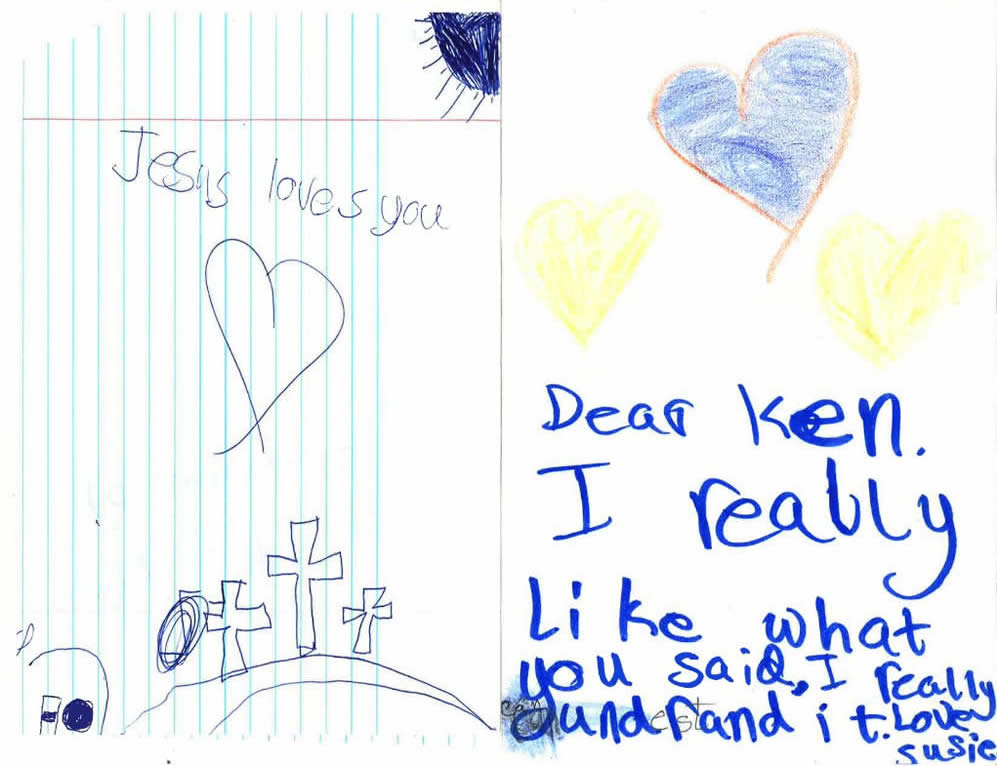 Jesus loves you
Dear Ken.
I really
Like what
you said. I really
undrand it. Love
susie